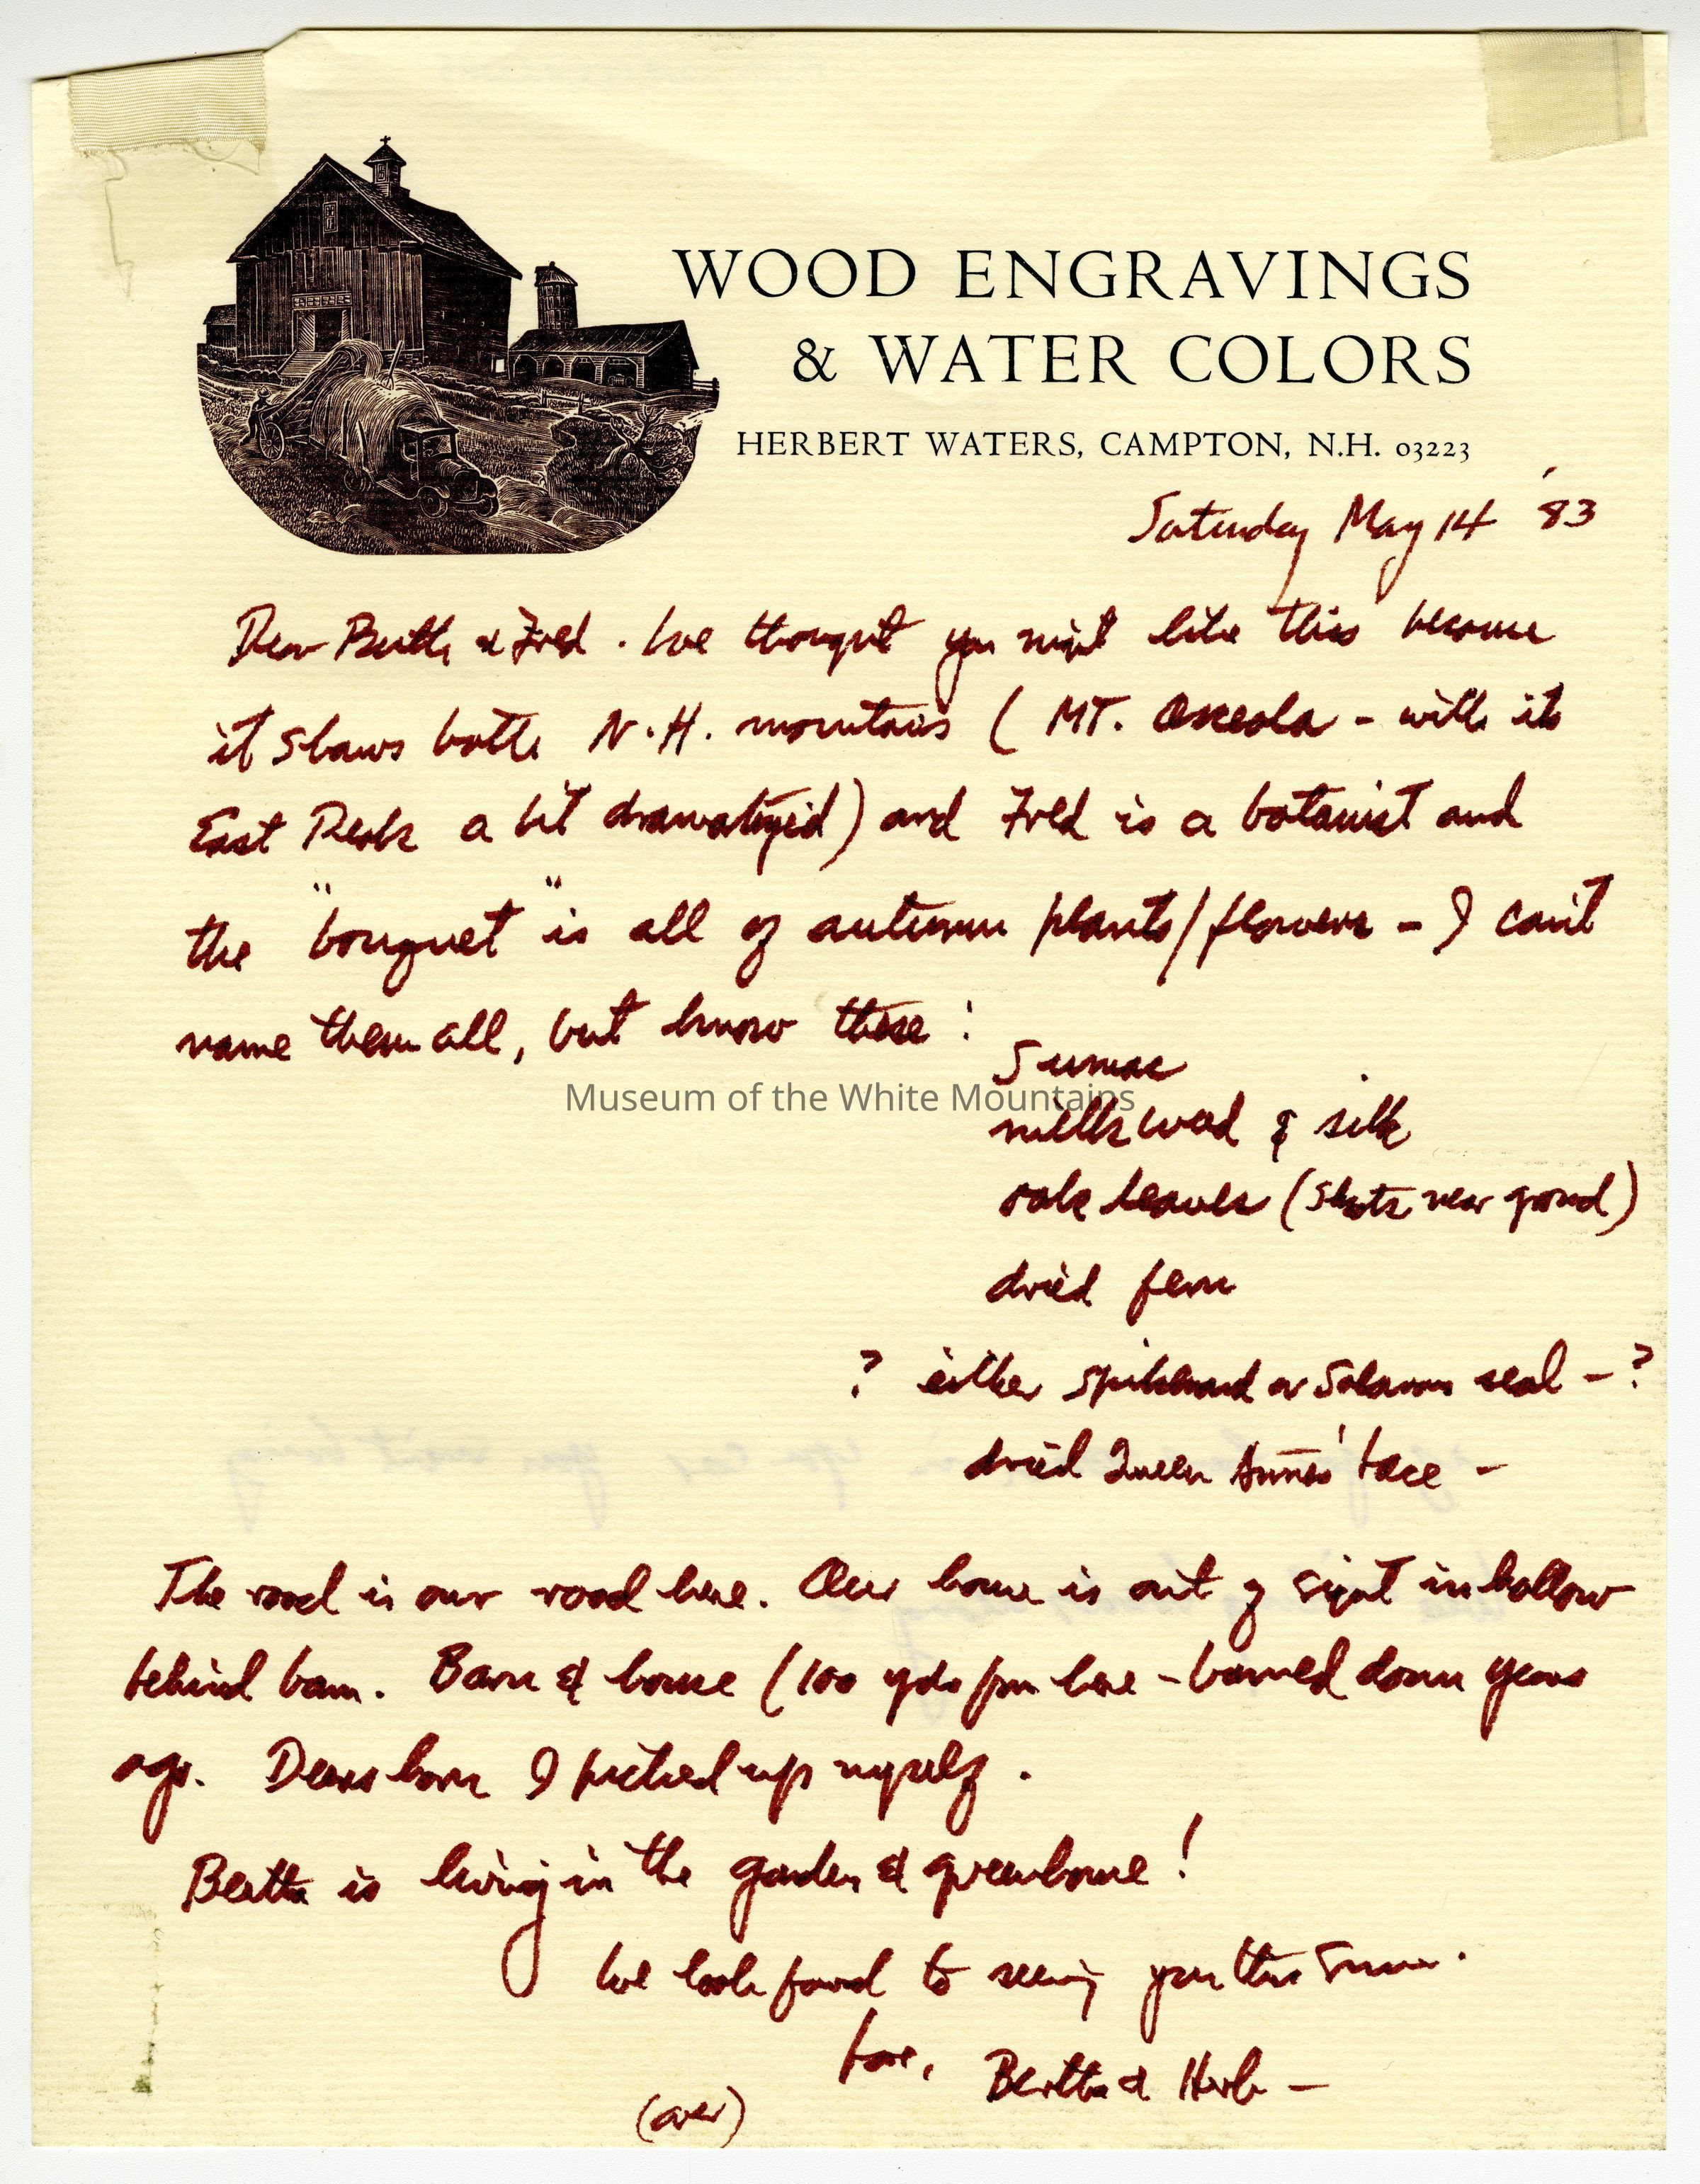 WOOD ENGRAVINGS
& WATER COLORS
HERBERT WATERS, CAMPTON, N.H. 03223
Saturday May 14 '83
Dear & Fred. We thought you might like this because
it shows both N.H. mountains (MT. Osceola - with its
East Peak a bit dramatized) and Fred is a botanist and
the "bouquet" is all of autumn plants/flowers - I can't
name them all, but know these :
Sumac
Museum of the White Mountains
milkweed & silk
oak leaves (shoots near ground)
dried fern
? either spikenard or Solomons seal - ?
dried Queen Annes' lace -
The road is our road here. Our home is out of sight in hollow
behind barn. Barn & house (100 yds from here - burned down years
ago. Deers horn I picked up myself.
Bertha is living in the garden & greenhouse!
We look forward to seeing you this summer.
Love, Bertha & Herb -
(over)